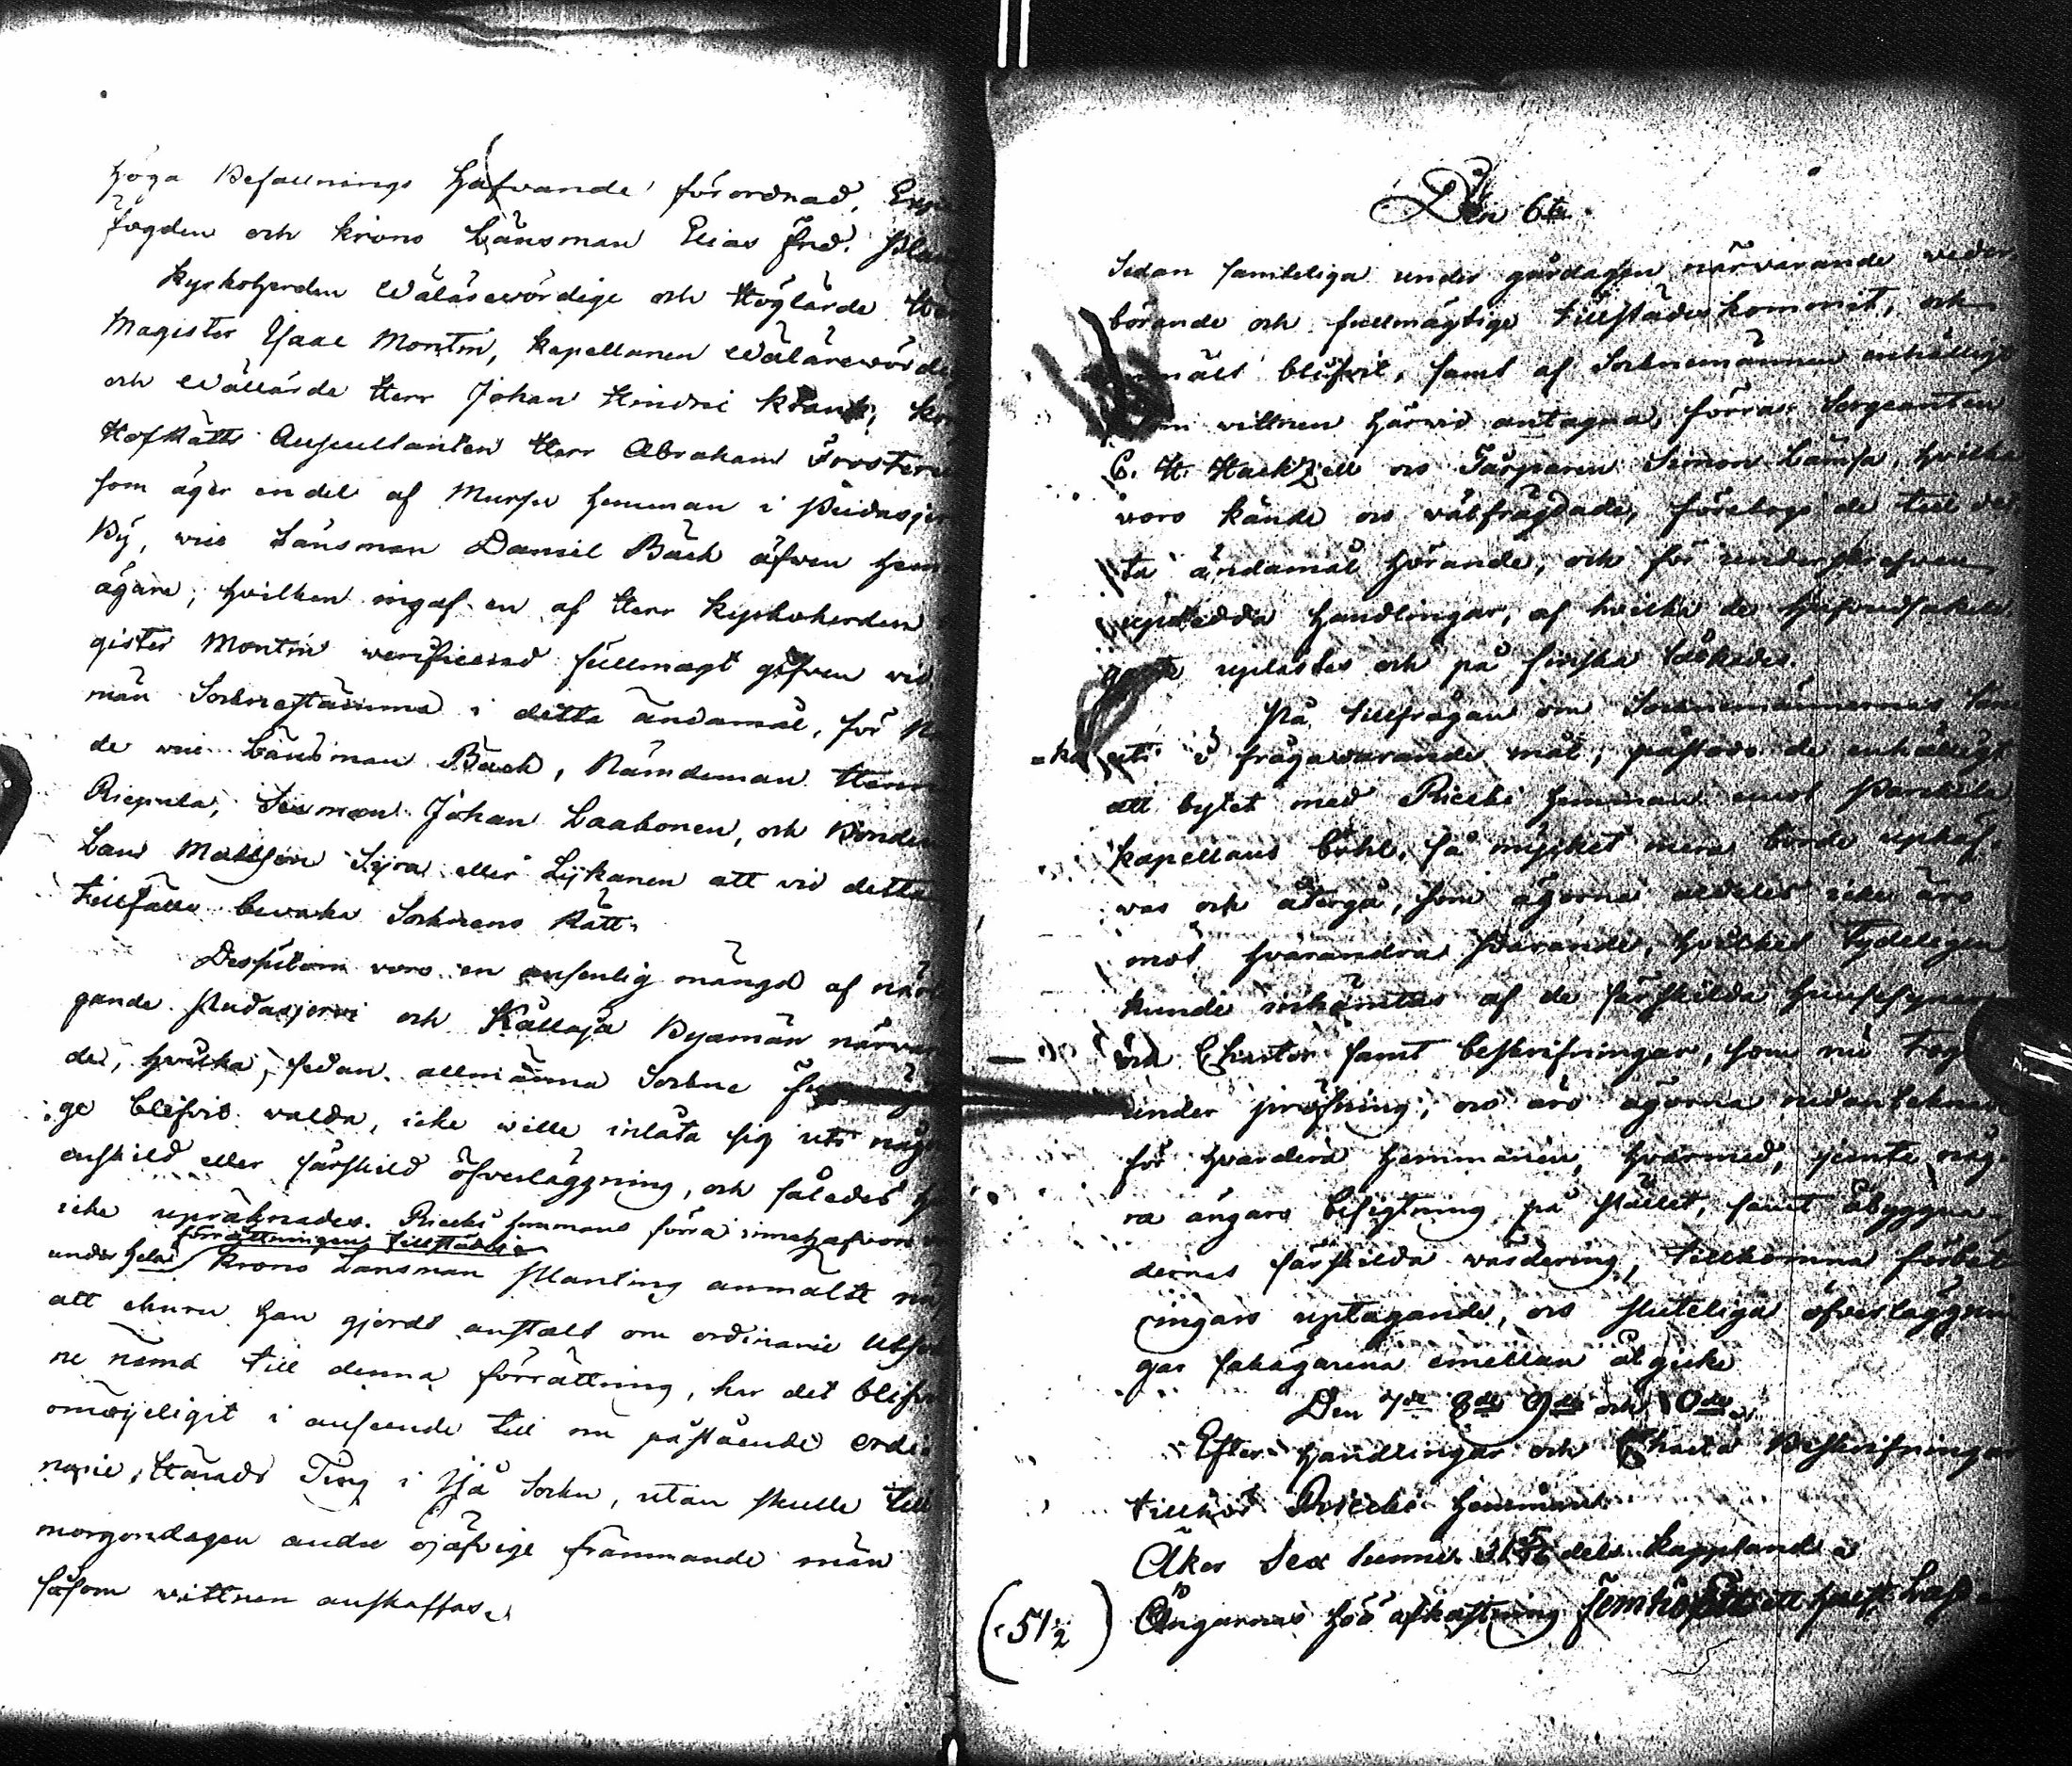 höga Befallnings Hafvande förordnad,
fogden och krons Länsman Elias Frid. Plan
Kyrkoherden Wälärewördige och Höglärde
Magister Isaac Montin, Kapellanen Wälärewördi
och Wällärde Herr Johan Hindric
Hofrätts Auscultanten Herr Abraham Froster
som äger en del af Mursu hemman i
By, vice Länsman Daniel Bäck äfven hem
ägare, hvilken ingaf en af Herr Kyrkoherden
gister Montin verificerad fullmagt gifven vid
män Socknestämma i detta ändamål, för
de vice Länsman Bäck, Nämdeman
Riepula, Sexman Johan Laakonen, och Bonden
Lars Mattsson Syra eller Lykanen att vid detta
tillfälle bevaka Socknens Rätt.
Dessutom voro en ansenlig mängd af när
gande Pudasjervi och Kållaja Byamän närvar
de, hvilka, sedan allmänna Sockne
ge blifvit valda, icke wille inlåta sig uti någ
enskild eller särskild öfverläggning, och således
icke upräknades. Riecki hemmans förra innehafvare
förrättningen tillstädes
under hela Krono Länsman Planting anmälte nu,
att ehuru han gjordt anstalt om ordinarie
ne nämd till denna förrättning, har det blifvit
omöjeligit i anseende till nu påstående ordi
narie Härads Ting i Ijå Sockn, utan skulle till
morgondagen andre ojäfvige främmande män
såsom wittnen anskaffas.
Den 6te
Sedan samteliga under gårdagen närvarande veder
börande och fullmägtige tillstädes kommit, och
mält blifvit, samt af Sockenemännen enhälligt
vittnen härvid antagna, förra Sergeanten
C. H. Hackzell och Torparen Simon Lämsä, hvilka
voro kände och välfrägdade, företogs de till det
ta ändamål hörande, och för underskrefven
uptedda handlingar, af hvilka de hufvudsakeli
gaste uplästes och på finska tolkades.
På tillfrågan om Sockenemännernas tan
=ka uti i frågavarande mål, påstodo de enhälligt
att bytet med Riecki hemman emot
Kapellans bohl, så mycket mera borde uphäf
vas och återgå, som ägorna aldeles icke äro
mot hvarandra svarande, hvilket tydeligen
kunde inhämtas af de särskilda husesyner
och Chartor samt beskrifningar, som nu togos
under pröfning, och äro ägorna
för hvardera hemmanen, hvarmed, jemte någ
ra ängars besigtning på stället, samt åbyggna
dernas särskilda värdering, tillkomna förbät
ringars uptagande, och sluteliga öfverläggnin
gar sakägarena emellan åtgicke
Den 7de 8de 9de och 10de.
Efter handlingar och Charta Beskrifningar
tillhör Riecki hemmanet
Åker Sex tunne dels kappland
(51½) Ängarnas hö afkastning femtio ett half lass